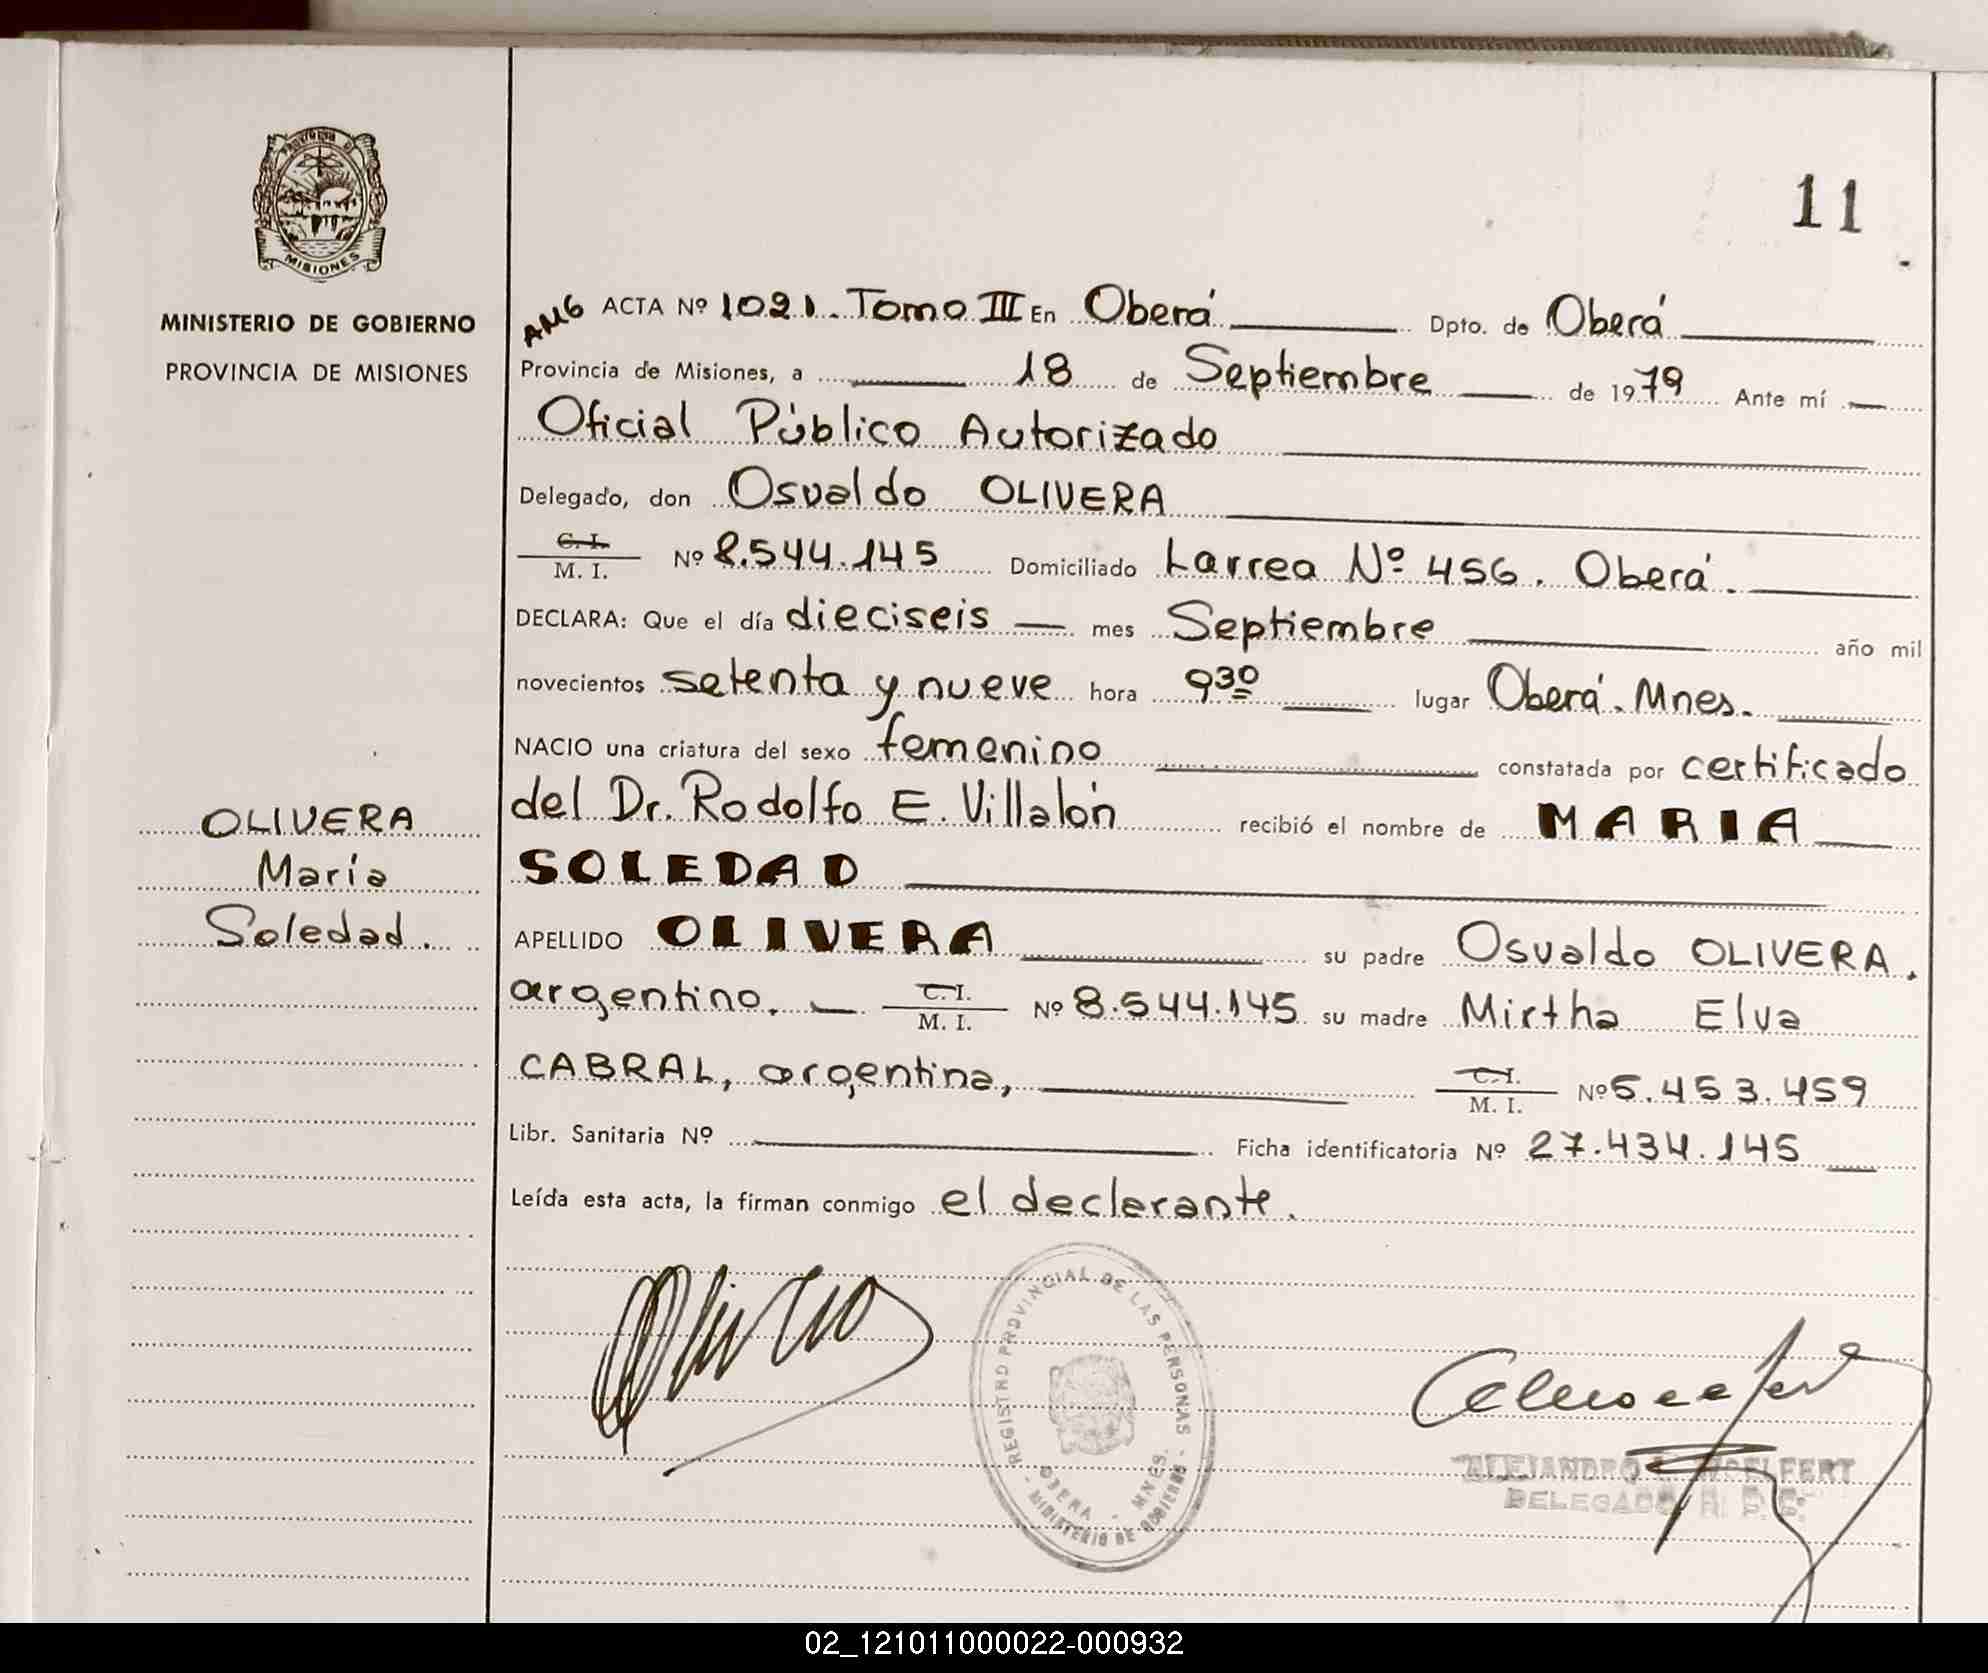 PROVINCIA DE
MISIONES
MINISTERIO DE GOBIERNO
PROVINCIA DE MISIONES
OLIVERA
María
Soledad.
11
AMG ACTA Nº 1021. Tomo III En Oberá Dpto. de Oberá
Provincia de Misiones, a 18 de Septiembre de 1979 Ante mí
Oficial Público Autorizado
Delegado, don Osvaldo OLIVERA
C. I.
M. I. Nº 8.544.145 Domiciliado Larrea Nº 456. Oberá.
DECLARA: Que el día dieciseis mes Septiembre año mil
novecientos setenta y nueve hora 9 30 lugar Oberá. Mnes.
NACIO una criatura del sexo femenino constatada por certificado
del Dr. Rodolfo E. Villalón recibió el nombre de MARIA
SOLEDAD
APELLIDO OLIVERA su padre Osvaldo OLIVERA.
argentino. C. I.
M. I. Nº 8.544.145 su madre Mirtha Elva
CABRAL, argentina, C. I.
M. I. Nº 5.453.459
Libr. Sanitaria Nº Ficha identificatoria Nº 27.434.145
Leída esta acta, la firman conmigo el declarante.
REGISTRO PROVINCIAL DE LAS PERSONAS
OBERA - MNES.
MINISTERIO DE GOBIERNO
ALEJANDRO
DELEGADO R. P. C.
02_121011000022-000932